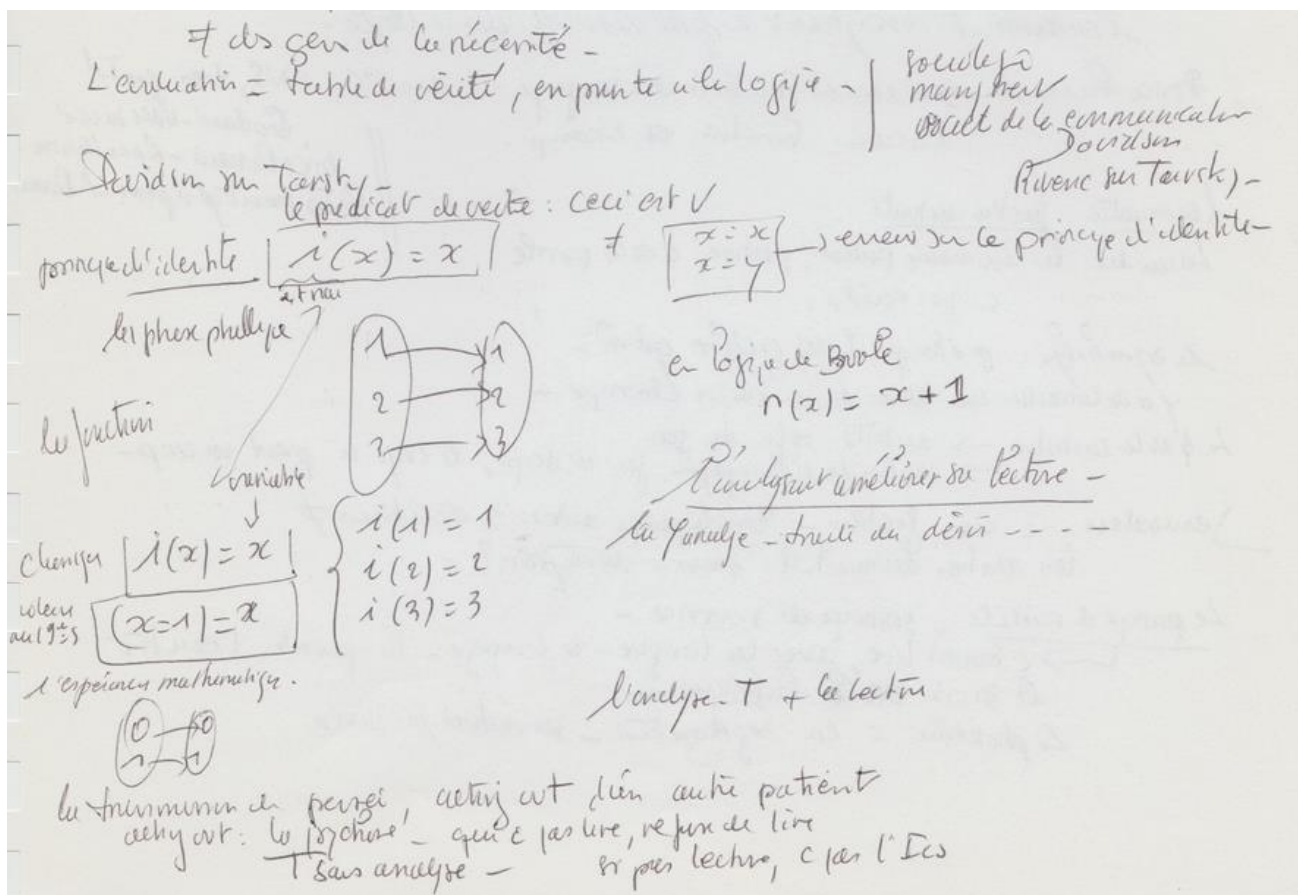 ≠ des gens de la nécessité -
L'évaluation = table de vérité, emprunte à la logique -
sociologie
manquent
société de la communication
Davidson
Rivenc sur Tarski -
Davidson sur Tarski -
le prédicat de vérité : ceci est V
principe d'identité i(x) = x ≠ x = x
x = y → erreur sur le principe d'identité -
est
la phase phallique
1 → 1
2 → 2
3 → 3
la fonction
en logique de Boole
n(x) = x + 1
variable
L'analysant améliorer sa lecture -
la ψanalyse - du désir - - -
changer i(x) = x
(x=1) = x
i(1) = 1
i(2) = 2
i(3) = 3
l'expérience mathématique.
0 → 0
1 → 1
l'analyse - T + la lecture
la transmission de pensée, acting out d'un autre patient
acting out : la psychose - qui c pas lire, refus de lire
T sans analyse - si pas lecture, c pas l'Ics